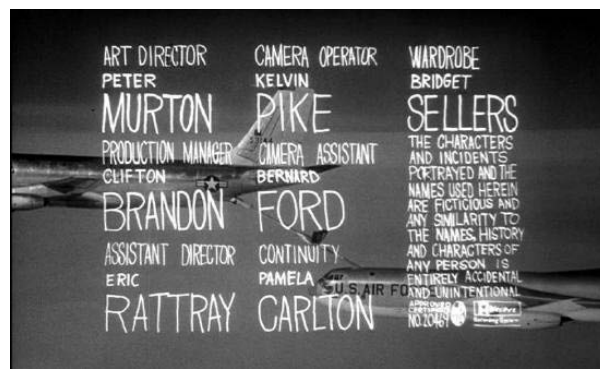 ART DIRECTOR
PETER
MURTON
PRODUCTION MANAGER
CLIFTON
BRANDON
ASSISTANT DIRECTOR
ERIC
RATTRAY
CAMERA OPERATOR
KELVIN
PIKE
CAMERA ASSISTANT
BERNARD
FORD
CONTINUITY
PAMELA
CARLTON
WARDROBE
BRIDGET
SELLERS
THE CHARACTERS
AND INCIDENTS
PORTRAYED AND THE
NAMES USED HEREIN
ARE FICTICIOUS AND
ANY SIMILARITY TO
THE NAMES, HISTORY
AND CHARACTERS OF
ANY PERSON IS
ENTIRELY ACCIDENTAL
AND UNINTENTIONAL
APPROVED
CERTIFICATE
NO. 20469
U.S. AIR FO